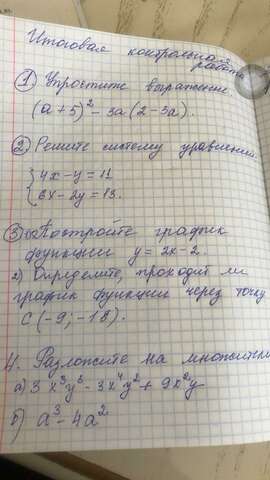 Итоговая контрольная
работа
1 Упростите выражение
(а + 5)² - 3а (2 - 3а).
2 Решите систему уравнений
{4х - у = 11
{6х - 2у = 13.
3) а) Постройте график
функции у = 2х - 2.
2) Определите, проходит ли
график функции через точку
С (-9; -18).
4. Разложите на множители
а) 3х³у³ - 3х⁴у² + 9х²у
б) а³ - 4а²